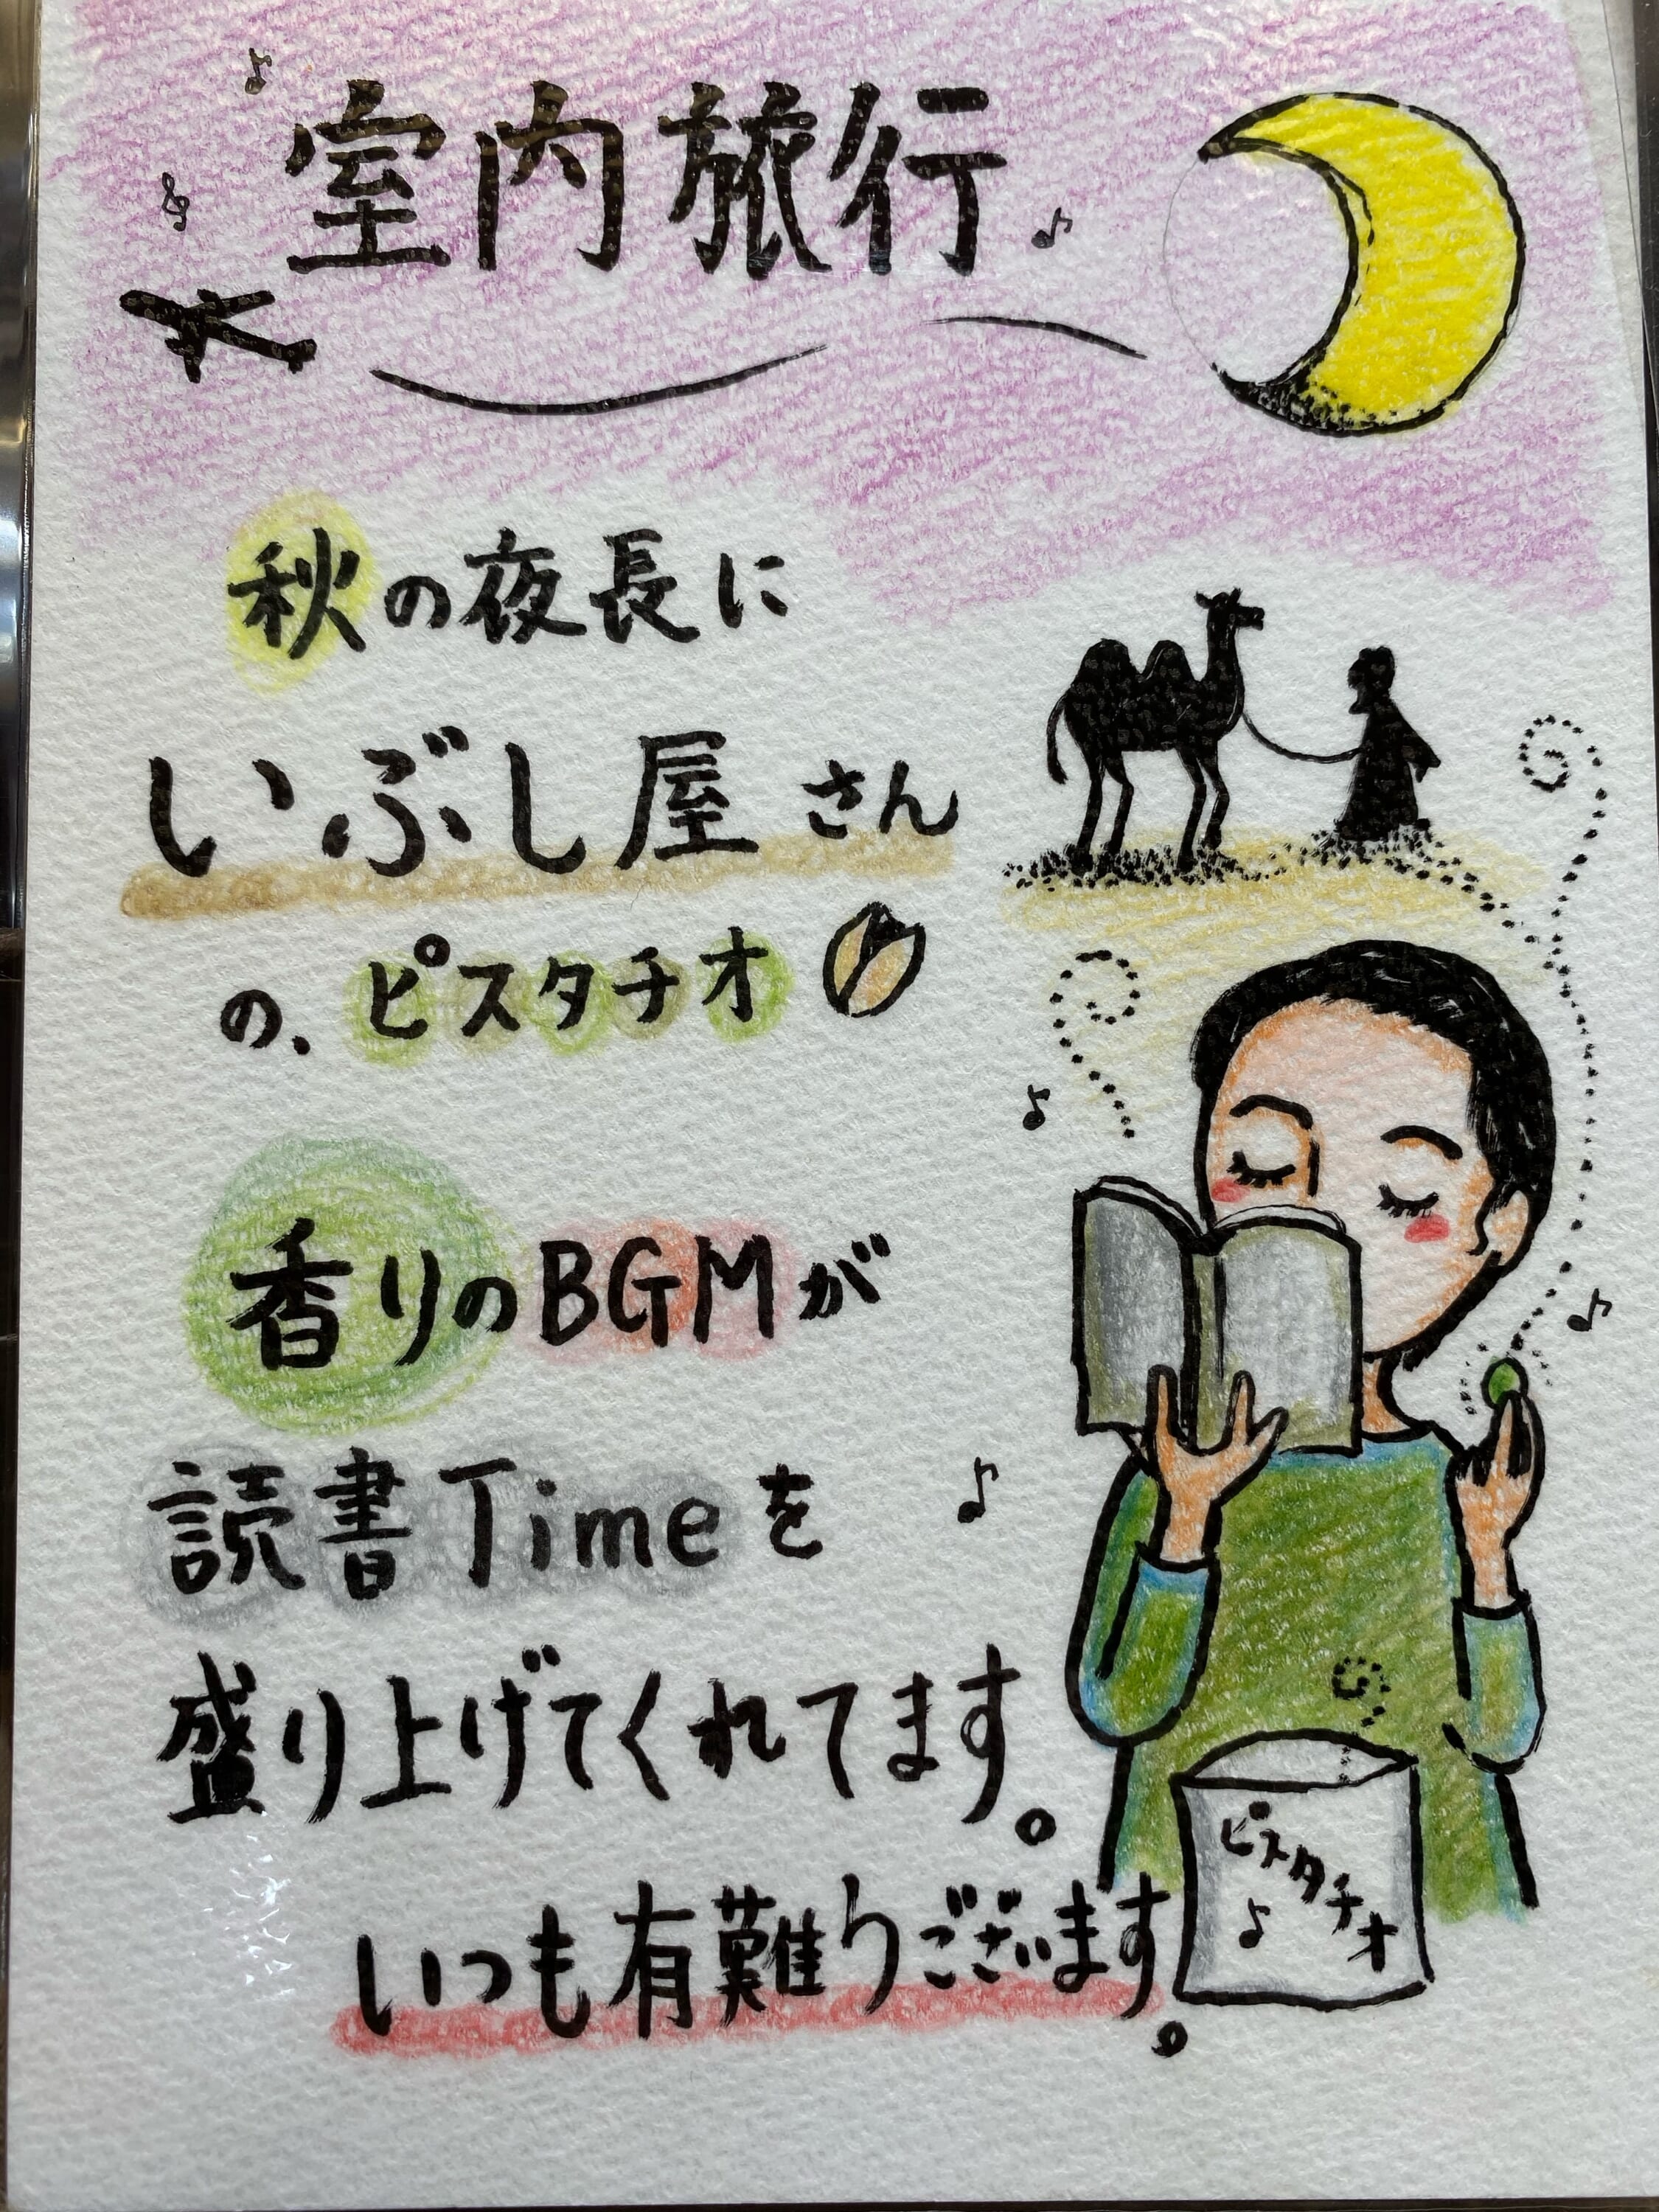 室内旅行
秋の夜長に
いぶし屋さん
の、ピスタチオ
香りのBGMが
読書Timeを
盛り上げてくれてます。
いつも有難うございます。
ピスタチオ